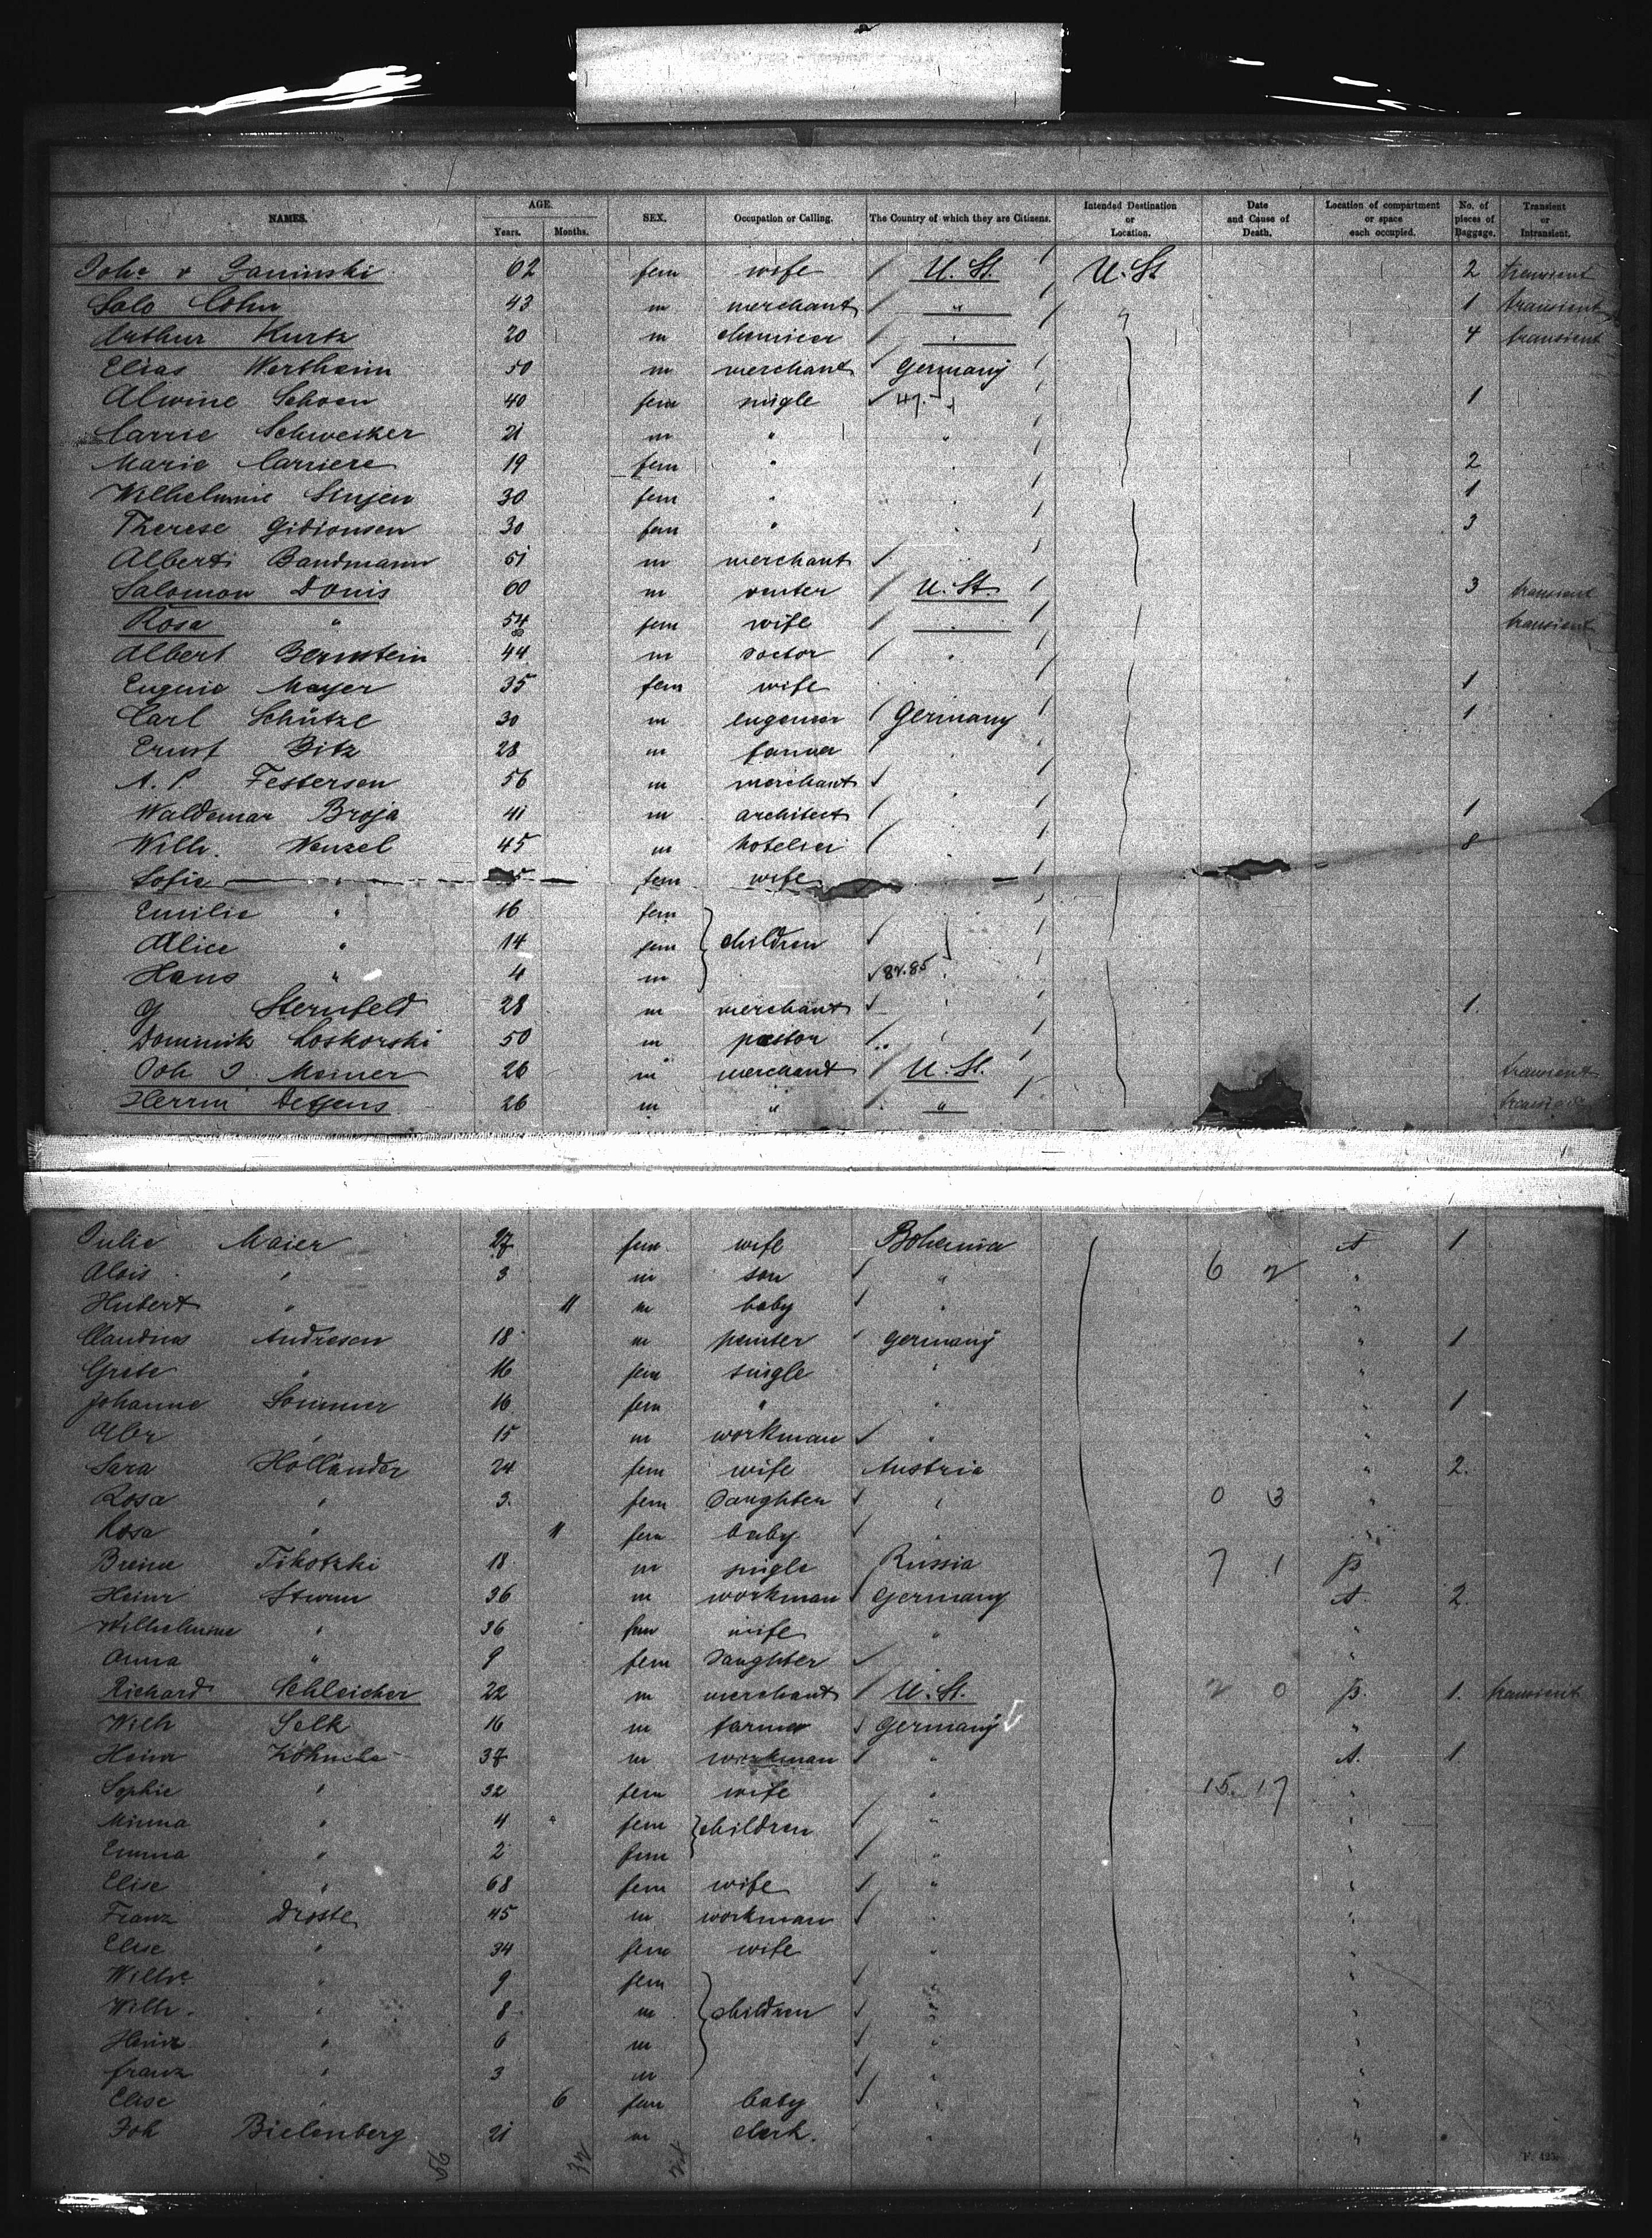 NAMES. AGE. Years. Months. SEX. Occupation or Calling. The Country of which they are Citizens. Intended Destination or Location. Date and Cause of Death. Location of compartment or space each occupied. No. of pieces of Baggage. Transient or Intransient.
62 fem wife U. St. U. St 2 transient
Salo Cohn 43 m merchant " " 1 transient
Arthur Kurtz 20 m 4 transient
Elias Wertheim 50 m merchant Germany
Alwine Schoen 40 fem single 47. 1
Carrie Schweiker 21 m " "
Marie Carriere 19 fem " 2
Wilhelmine 30 fem " 1
Therese Gidionsen 30 fem " 3
Albert Bandmann 51 m merchant
Salomon Donis 60 m U. St. 3 transient
Rosa " 54 fem wife transient
Albert Bernstein 44 m doctor "
Eugenie Mayer 35 fem wife 1
Carl Schütze 30 m Germany 1
Ernst Bitz 28 m farmer
A. P. Festersen 56 m merchant
Waldemar Broja 41 m architect 1
Wilh. Wenzel 45 m 8
Sofie " fem wife
Emilie " 16 fem
Alice " 14 fem children
Hans " 4 m 84.85
G Sternfeld 28 m merchant 1.
Dominik Loskorski 50 m pastor
Joh I. Meiner 26 m merchant U. St. transient
26 m " " transient
Julie Maier 27 fem wife Bohemia A 1
Alois " 3 m son " 6 2 "
Hubert " 11 m baby " "
Claudius Andresen 18 m germany " 1
Grete " 16 fem single " "
Johanne Sommer 16 fem " " " 1
Albr " 15 m workman " "
Sara Holländer 24 fem wife Austria " 2.
Rosa " 3. fem Daughter " 0 3 "
Rosa " 11 fem baby " "
Tikotzki 18 m single Russia 7 1 p
Heinr Sturm 36 m workman Germany A. 2.
Wilhelmine " 36 fem wife " "
Anna " 9 fem Daughter "
Richard Schleicher 22 m merchant U. St. 2 0 p. 1. transient
Wilh Selk 16 m farmer Germany "
Heinr 37 m workman " A. 1
Sophie " 32 fem wife " 15. 17 "
Minna " 4 fem children " "
Emma " 2 fem " "
Elise " 68 fem wife " "
Franz Droste 45 m workman " "
Elise " 34 fem wife " "
Wilhe " 9 fem " "
Wilh. " 8 m children " "
Heinr " 6 m " "
Franz " 3 m " "
Elise " 6 fem baby " "
Joh Bielenberg 21 m clerk. " "
56 32